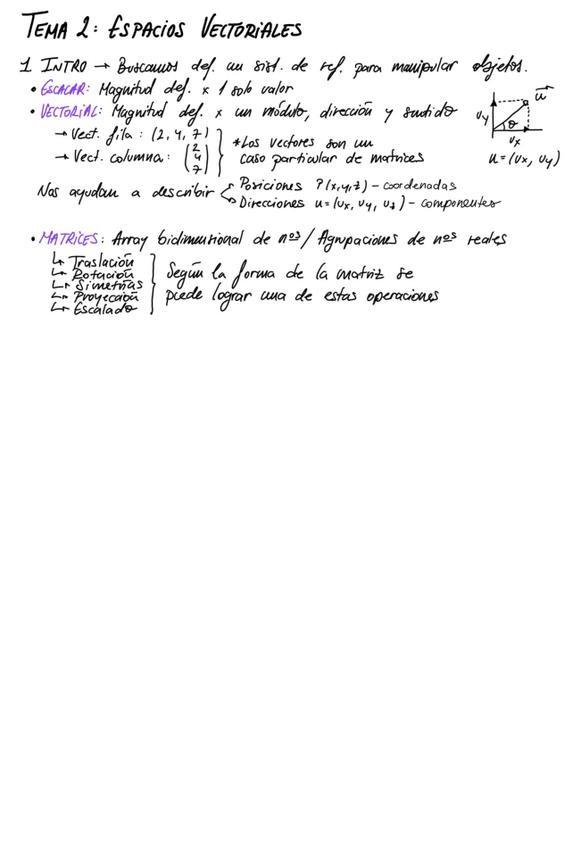 TEMA 2: ESPACIOS VECTORIALES
1 INTRO → Buscamos def. un sist. de ref. para manipular objetos.
• ESCALAR: Magnitud def. x 1 solo valor
• VECTORIAL: Magnitud def. x un módulo, dirección y sentido
→ Vect. fila: (2, 4, 7)
→ Vect. columna: (2 4 7)
*Los vectores son un
caso particular de matrices
u
Uy
θ
Ux
u = (Ux, Uy)
Nos ayudan a describir
Posiciones P(x,y,z) - coordenadas
Direcciones u = (Ux, Uy, Uz) - componentes
• MATRICES: Array bidimensional de nos / Agrupaciones de nos reales
↳ Traslación
↳ Rotación
↳ Simetrías
↳ Proyección
↳ Escalado
Según la forma de la matriz se
puede lograr una de estas operaciones